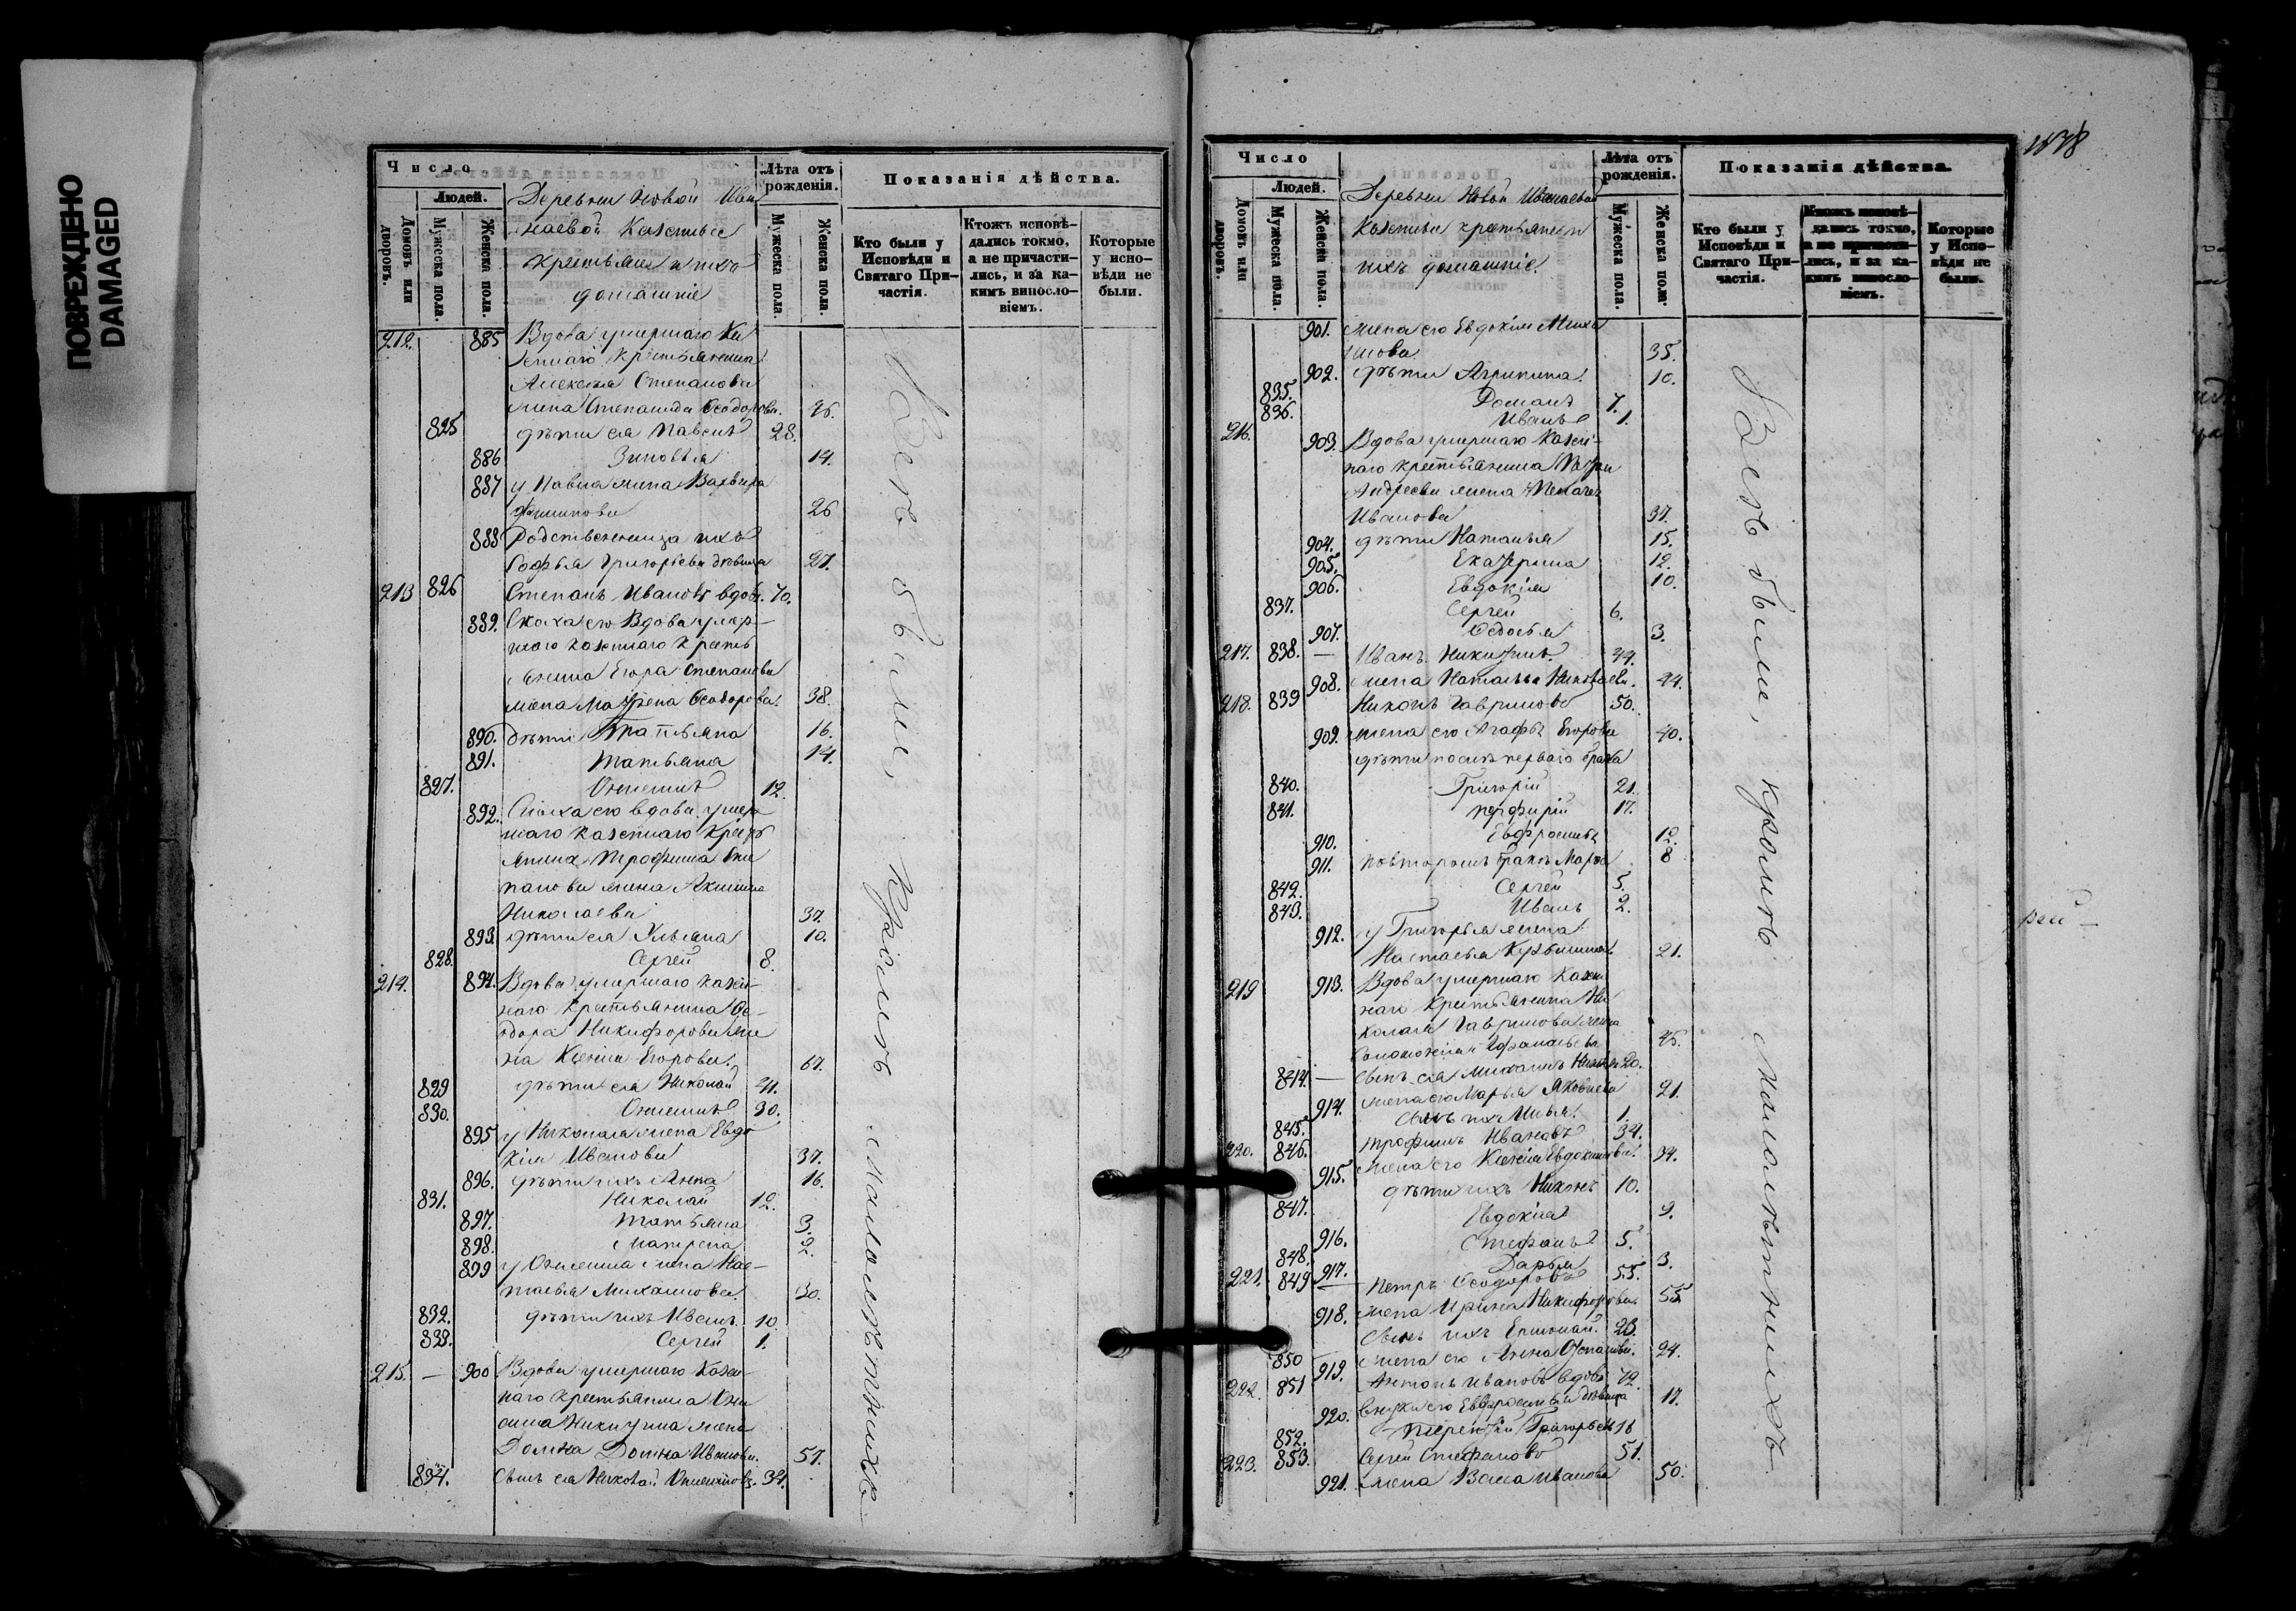 ПОВРЕЖДЕНО
DAMAGED
Число
Людей.
Домовъ или дворовъ.
Мужеска пола.
Женска пола.
Деревни Новой
Казенные
крестьяне и ихъ
домашніе
Лѣта отъ рожденія.
Мужеска пола.
Женска пола.
Показанія дѣйства.
Кто были у Исповѣди и Святаго Причастія.
Ктожъ исповѣдались токмо, а не причастились, и за какимъ винословіемъ.
Которые у исповѣди не были.
212. 885 Вдова умершаго Ка
зеннаго крестьянина
Алексея Степанова
жена Степанида Ѳеодорова. 46.
825 дѣти ея Павелъ 28.
886 Зиновья 14.
887 у Павла жена Варвара
26
888 Родственница ихъ
Софья Григорьева дѣвица 27.
213 826 Степанъ Ивановъ вдовъ. 70.
889. Сноха его Вдова умер-
шаго казеннаго кресть
янина Егора Степанова
жена Матрена Ѳеодорова. 38.
890. дѣти Татьяна 16.
891. Татьяна 14.
827. Онисимъ 12.
892. Сноха его вдова умер
шаго казеннаго крестъ
янина Трофима Сте
панова жена Акилина
Николаева 37.
893. дѣти ея Ульяна 10.
828. Сергей 8.
214. 894. Вдова умершаго казен-
наго крестьянина Ѳе-
одора Никифорова же
на Ксенія Егорова. 67.
829 дѣти ея Николай 41.
830. Онисимъ 30.
895 у Николая жена Евдо
кія Иванова 37.
896. дѣти ихъ Анна 16.
831. Николай 12.
897. Татьяна 3.
898. Матрена 2.
899 у Онисима жена Нас-
тасья Михаилова. 30.
832. дѣти ихъ Иванъ 10.
833. Сергей 1.
215. — 900 Вдова умершаго Казен-
наго крестьянина Они
сима Никитина жена
Домна Домна Иванова. 57.
834. Сынъ ея Николай Онисимовъ. 34.
Всѣ были, кромѣ малолѣтнихъ
Число
Людей.
Домовъ или дворовъ.
Мужеска пола.
Женска пола.
Деревни Новой
Казенные крестьяне и
ихъ домашніе.
Лѣта отъ рожденія.
Мужеска пола.
Женска пола.
Показанія дѣйства.
Кто были у Исповѣди и Святаго Причастія.
Ктожъ исповѣдались токмо, а не причастились, и за какимъ винословіемъ.
Которые у Исповѣди не были.
901. жена его Евдокія Миха
илова. 35.
902. дѣти Агрипина. 10.
835. Романъ 7.
836. Иванъ 1.
216. 903. Вдова умершаго Казен-
наго крестьянина
Андреева жена Пелагея
Иванова 37.
904. дѣти Наталья 15.
905. Екатерина 12.
906. Евдокія 10.
837. Сергей 6.
907. Ѳедосья 3.
217. 838. — Иванъ Никитинъ. 44.
908. жена Наталья Николаева. 44.
218. 839 Никонъ Гавриловъ 50.
909. жена его Агафья Егорова 40.
дѣти послѣ перваго брака
840. Григорій 21.
841. Порфирій 17.
910. Евфросинья 12.
911. повторомъ бракѣ Марфа 8
842. Сергей 5.
843. Иванъ 2.
912. у Григорья жена
Настасья Кузьмина 21.
219 913. Вдова умершаго Казен
наго крестьянина Ни
колая Гаврилова жена
Соломонія 45.
844. — Сынъ ея Михаилъ 20.
914. жена его Марья Яковлева 21.
845. Сынъ ихъ Илья. 1.
220. 846. Трофимъ Ивановъ 34.
915. жена его Ксенія Евдокимова. 34.
847. дѣти ихъ Никонъ 10.
916. Евдокія 9.
848. Стефанъ 5.
917. Дарья 3.
221. 849 Петръ Ѳеодоровъ 55.
918. жена Ирина Никифорова. 55
850 Сынъ ихъ Ермолай. 23.
919. жена его Анна 24.
222. 851 Антонъ Ивановъ вдовъ 72.
920. Внуки его Евфросинья дѣвица 17.
852. Терентій Григорьевъ 16
223. 853. Сергей Стефановъ 51.
921. жена Васса Иванова 50.
Всѣ были, кромѣ малолѣтнихъ